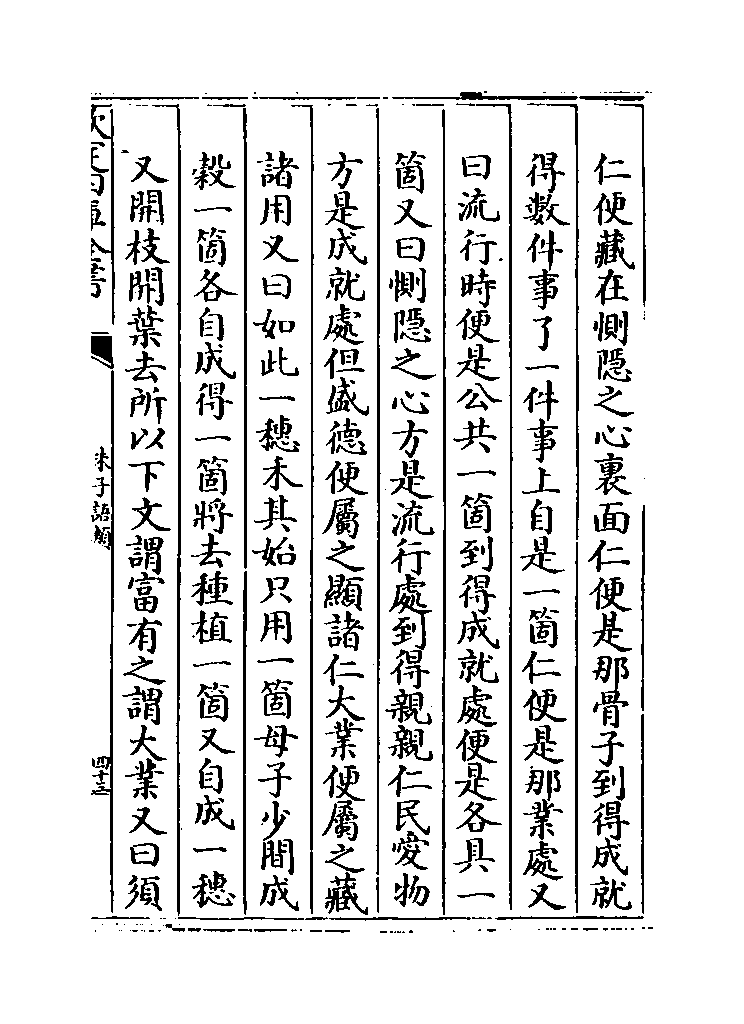 仁便藏在惻隠之心裏面仁便是那骨子到得成就
得數件事了一件事上自是一箇仁便是那業處又
曰流行時便是公共一箇到得成就處便是各具一
箇又曰惻隠之心方是流行處到得親親仁民愛物
方是成就處但盛德便屬之顯諸仁大業便屬之藏
諸用又曰如此一穗禾其始只用一箇母子少間成
穀一箇各自成得一箇將去種植一箇又自成一穗
又開枝開葉去所以下文謂富有之謂大業又曰須
欽定四庫全書
朱子語類
四十三